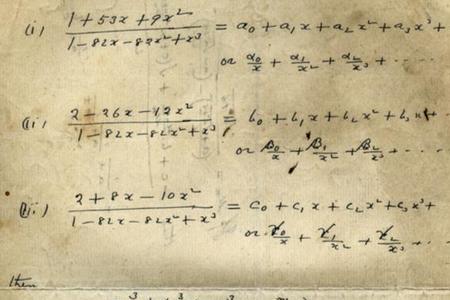 (i) (1+53x+9x²)/(1-82x-82x²+x³) = a₀+a₁x+a₂x²+a₃x³+
or α₀/x + α₁/x² + α₂/x³ + ....
(ii) (2-26x-12x²)/(1-82x-82x²+x³) = b₀+b₁x+b₂x²+b₃x³+
or β₀/x + β₁/x² + β₂/x³ + ....
(iii) (2+8x-10x²)/(1-82x-82x²+x³) = c₀+c₁x+c₂x²+c₃x³+
or γ₀/x + γ₁/x² + γ₂/x³ + ..
then